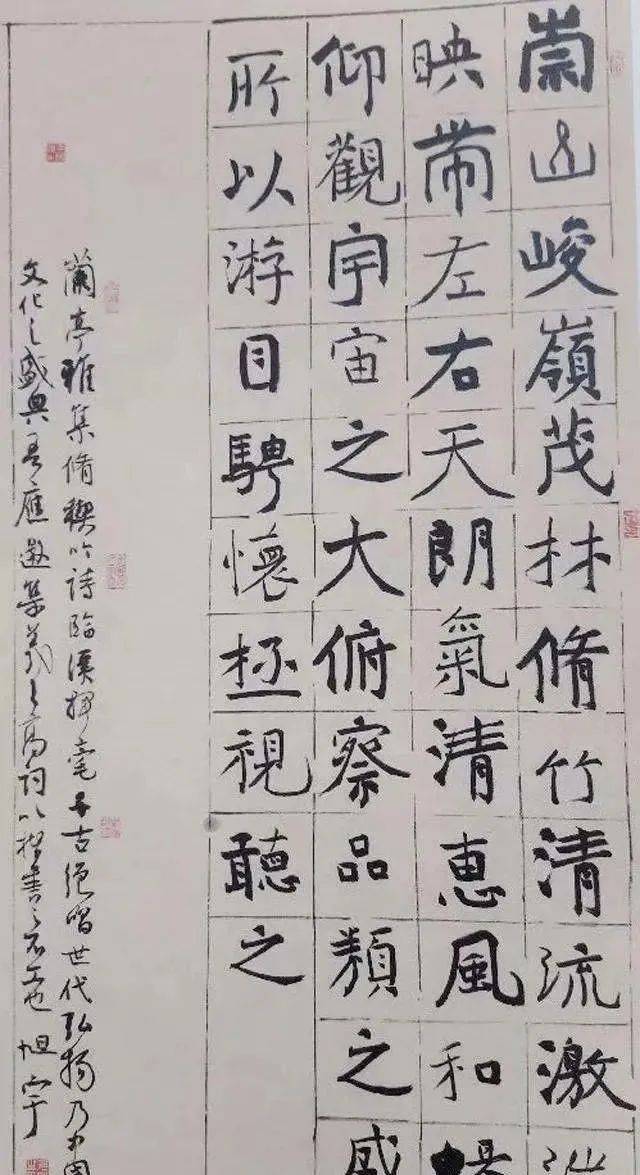 崇山峻嶺茂林脩竹清流激湍
映帶左右天朗氣清惠風和暢
仰觀宇宙之大俯察品類之盛
所以游目騁懷極視聽之
蘭亭雅集脩禊吟詩臨溪揮毫千古絕唱世代弘揚乃中國
文化之盛典吾應邀集羲之高詞以楷書之不工也 旭宇